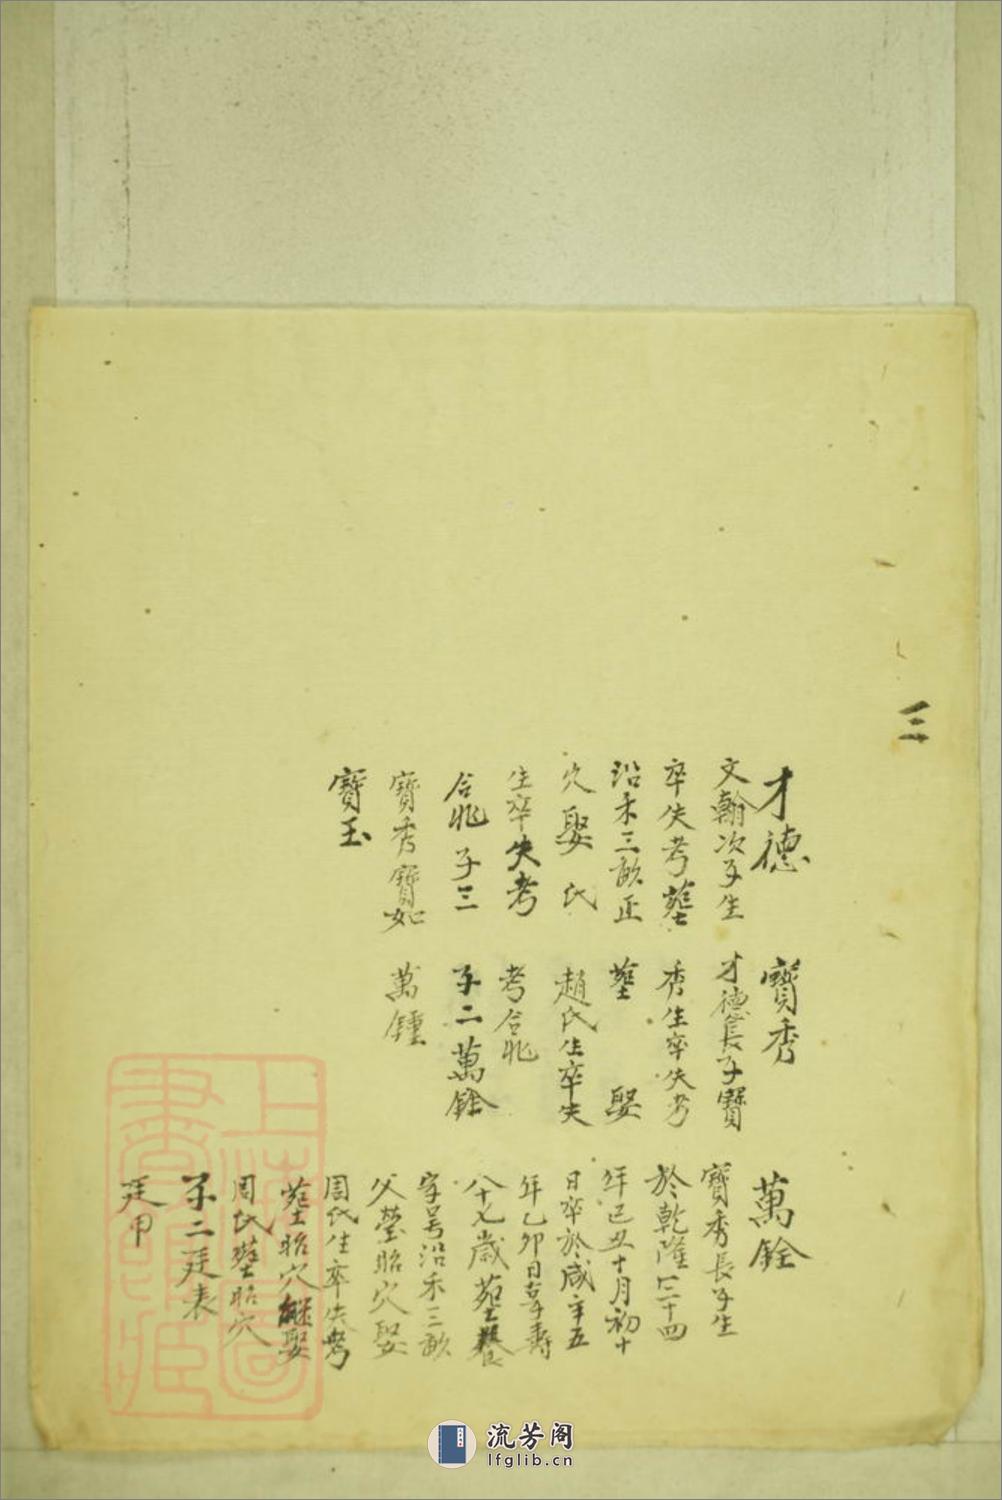 三
才德
文翰次子生
卒失考塟
沿禾三畝正
穴娶　氏
生卒失考
合兆子三
寶秀寶如
寶玉
寶秀
才德長子寶
秀生卒失考
塟　娶
趙氏生卒失
考合兆
子二萬銓
萬鍾
萬銓
寶秀長子生
於乾隆三十四
年己丑十月初十
日卒於咸辛五
年乙卯日享壽
八十七歲塟養
字号沿禾三畝
父塋昭穴娶
周氏生卒失考
塟昭穴繼娶
周氏塟昭穴
子二廷表
廷甲
上海圖書館藏
流芳阁
lfglib.cn